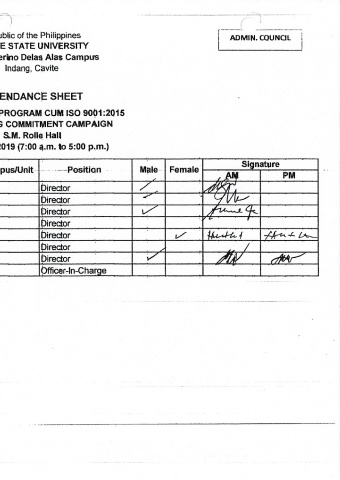 ublic of the Philippines
E STATE UNIVERSITY
erino Delas Alas Campus
Indang, Cavite
ADMIN. COUNCIL
ENDANCE SHEET
PROGRAM CUM ISO 9001:2015
G COMMITMENT CAMPAIGN
S.M. Rolle Hall
2019 (7:00 a.m. to 5:00 p.m.)
pus/Unit Position Male Female Signature
AM PM
Director
Director
Director
Director
Director
Director
Director
Officer-In-Charge